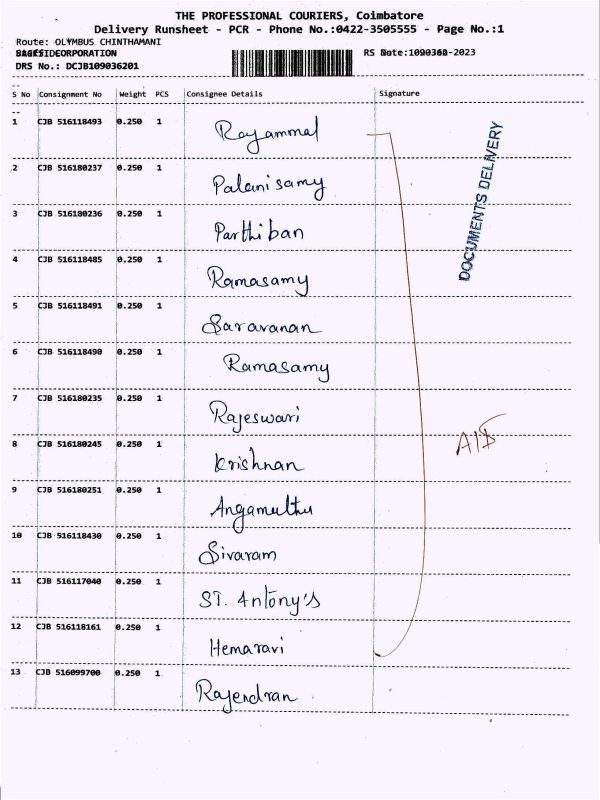 THE PROFESSIONAL COURIERS, Coimbatore
Delivery Runsheet - PCR - Phone No.:0422-3505555 - Page No.:1
Route: OLYMBUS CHINTHAMANI
DRS No.: DCJB109036201
S No Consignment No Weight PCS Consignee Details Signature
1 CJB 516118493 0.250 1 Rayammal
2 CJB 516180237 0.250 1 Palanisamy
3 CJB 516180236 0.250 1 Parthiban
4 CJB 516118485 0.250 1 Ramasamy
5 CJB 516118491 0.250 1 Saravanan
6 CJB 516118490 0.250 1 Ramasamy
7 CJB 516180235 0.250 1 Rajeswari
8 CJB 516180245 0.250 1 Krishnan
9 CJB 516180251 0.250 1 Angamuthu
10 CJB 516118430 0.250 1 Sivaram
11 CJB 516117040 0.250 1 ST. Antony's
12 CJB 516118161 0.250 1 Hemaravi
13 CJB 516099700 0.250 1 Rajendran
DOCUMENTS DELIVERY